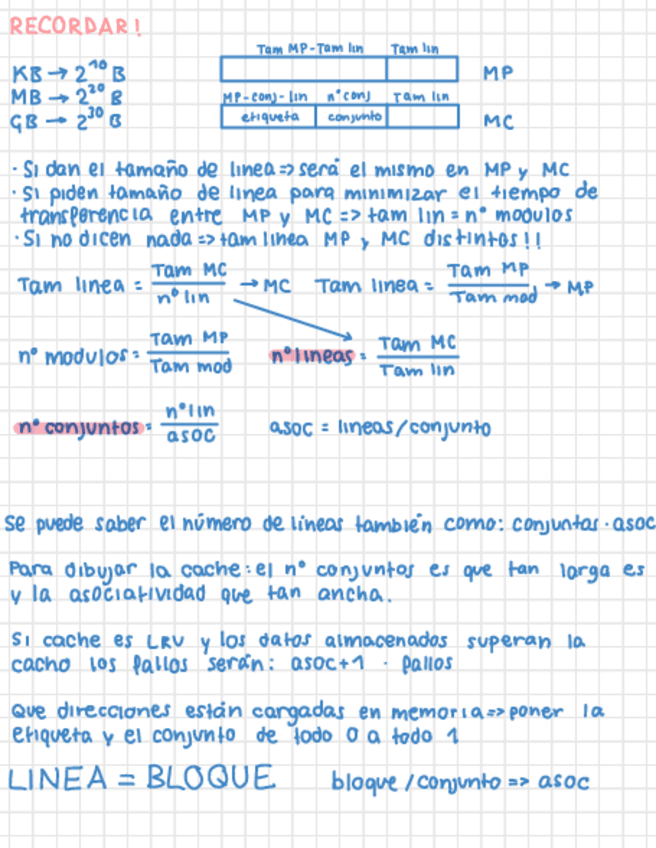 RECORDAR!
Tam MP-Tam lin Tam lin
KB → 2^10 B MP
MB → 2^20 B MP-conj-lin nº conj Tam lin
GB → 2^30 B etiqueta conjunto MC
· Si dan el tamaño de linea => será el mismo en MP y MC
· Si piden tamaño de linea para minimizar el tiempo de
transferencia entre MP y MC => tam lin = nº modulos
· Si no dicen nada => tam linea MP y MC distintos!!
Tam linea = Tam MC / nº lin → MC Tam linea = Tam MP / Tam mod → MP
nº modulos = Tam MP / Tam mod nº lineas = Tam MC / Tam lin
nº conjuntos = nº lin / asoc asoc = lineas/conjunto
Se puede saber el número de líneas también como: conjuntas · asoc
Para dibujar la cache: el nº conjuntos es que tan larga es
y la asociatividad que tan ancha.
Si cache es LRU y los datos almacenados superan la
cacho los fallos serán: asoc+1 · fallos
Que direcciones están cargadas en memoria => poner la
etiqueta y el conjunto de todo 0 a todo 1
LINEA = BLOQUE bloque/conjunto => asoc